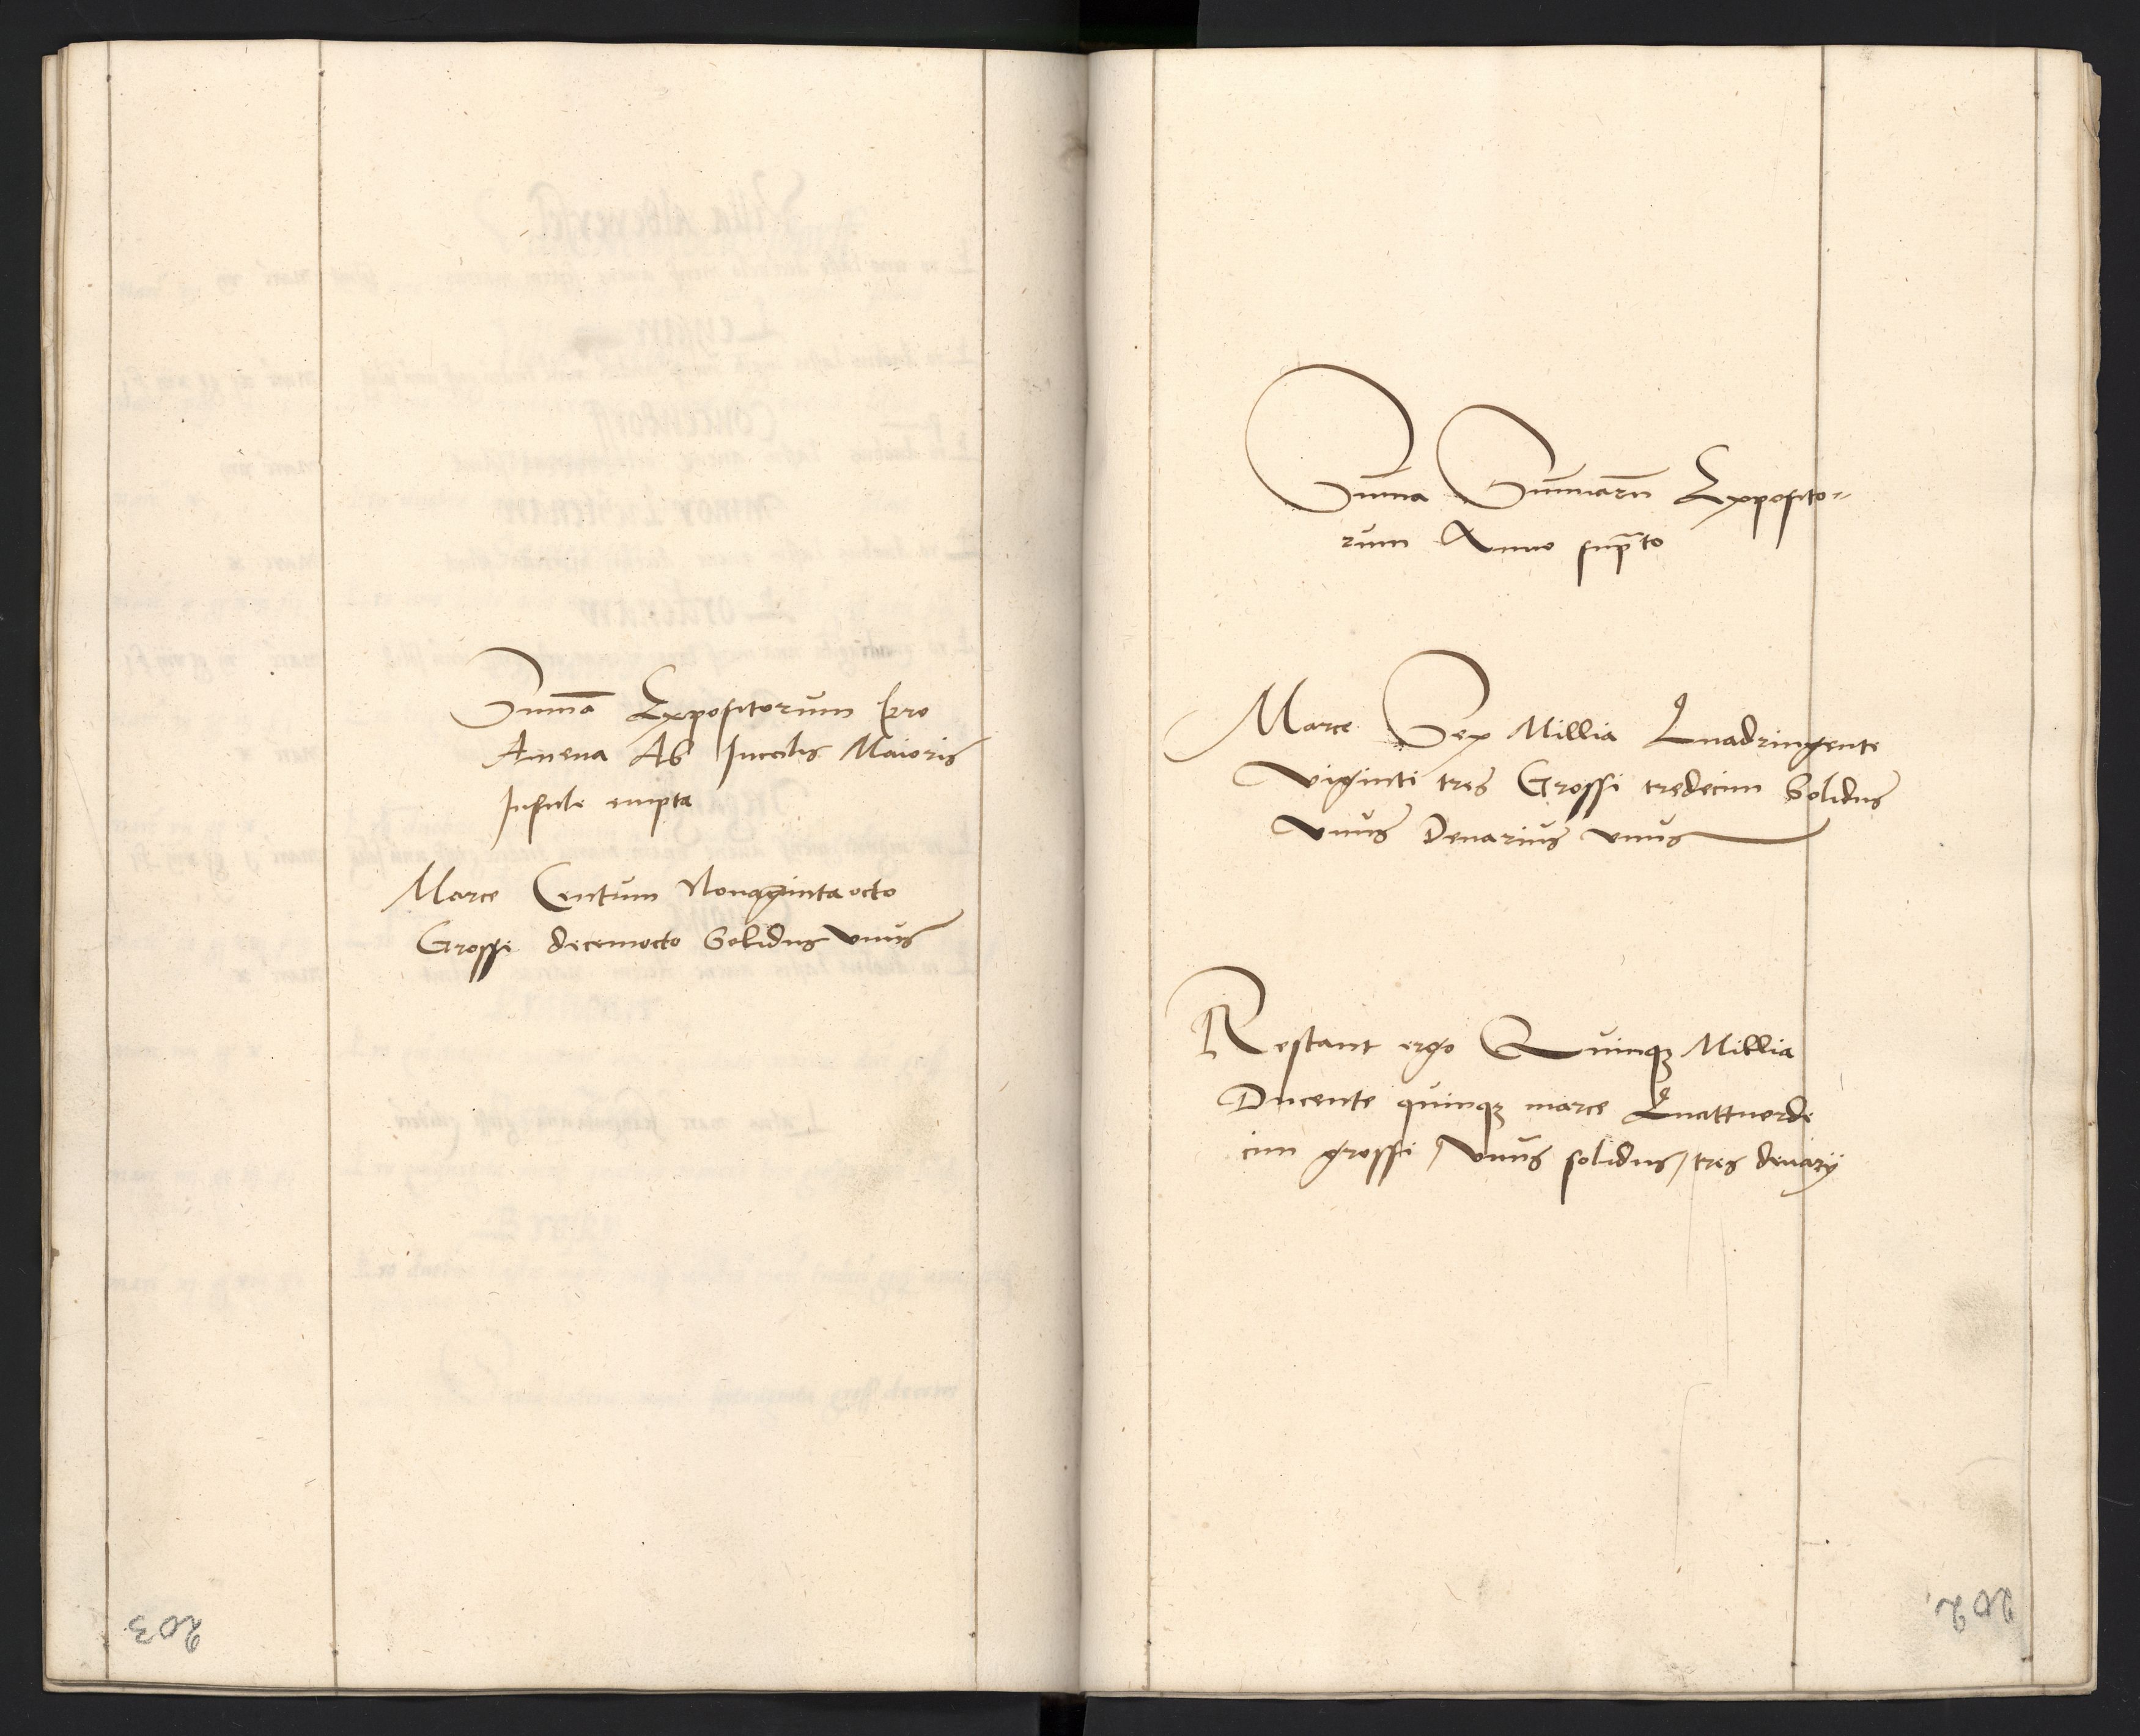 Summa Expositorum pro
Auena Ab Incolis Maioris
Insule empta
Marce Centum Nonaginta octo
Grossi decemocto Solidus vnus
203
Summa Summarũ Exposito=
rum Anno supᷓto
Marce Sex Millia Quadringente
viginti tres Grossi tredecim Solidus
vnus Denarius vnus
Restant ergo Quinqꝫ Millia
Ducente quinqꝫ marce Quattuorde
cim grossi / vnus solidus / tres denarij
202